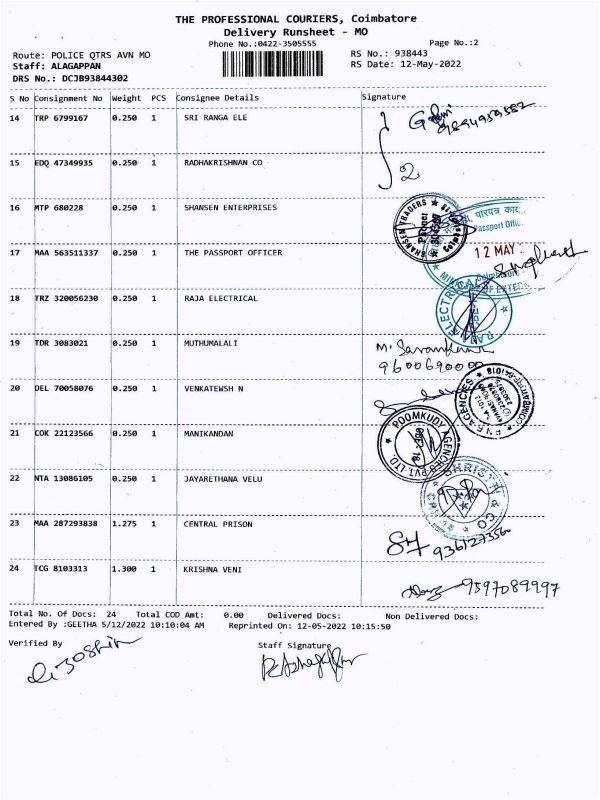 THE PROFESSIONAL COURIERS, Coimbatore
Delivery Runsheet - MO
Phone No.:0422-3505555 Page No.:2
Route: POLICE QTRS AVN MO RS No.: 938443
Staff: ALAGAPPAN RS Date: 12-May-2022
DRS No.: DCJB93844302
S No Consignment No Weight PCS Consignee Details Signature
14 TRP 6799167 0.250 1 SRI RANGA ELE
15 EDQ 47349935 0.250 1 RADHAKRISHNAN CO
16 MTP 680228 0.250 1 SHANSEN ENTERPRISES
SHANSEN TRADERS
पारपत्र
Passport
17 MAA 563511337 0.250 1 THE PASSPORT OFFICER
12 MAY
18 TRZ 320056230 0.250 1 RAJA ELECTRICAL
19 TDR 3083021 0.250 1 MUTHUMALALI
9600690000
20 DEL 70058076 0.250 1 VENKATEWSH N
AGENCIES
POOMKUDY AGENCIES PVT LTD.
21 COK 22123566 0.250 1 MANIKANDAN
22 NTA 13086105 0.250 1 JAYARETHANA VELU
CHRISTY & CO
23 MAA 287293838 1.275 1 CENTRAL PRISON
9361273560
24 TCG 8103313 1.300 1 KRISHNA VENI
9597089997
Total No. Of Docs: 24 Total COD Amt: 0.00 Delivered Docs: Non Delivered Docs:
Entered By :GEETHA 5/12/2022 10:10:04 AM Reprinted On: 12-05-2022 10:15:50
Verified By Staff Signature